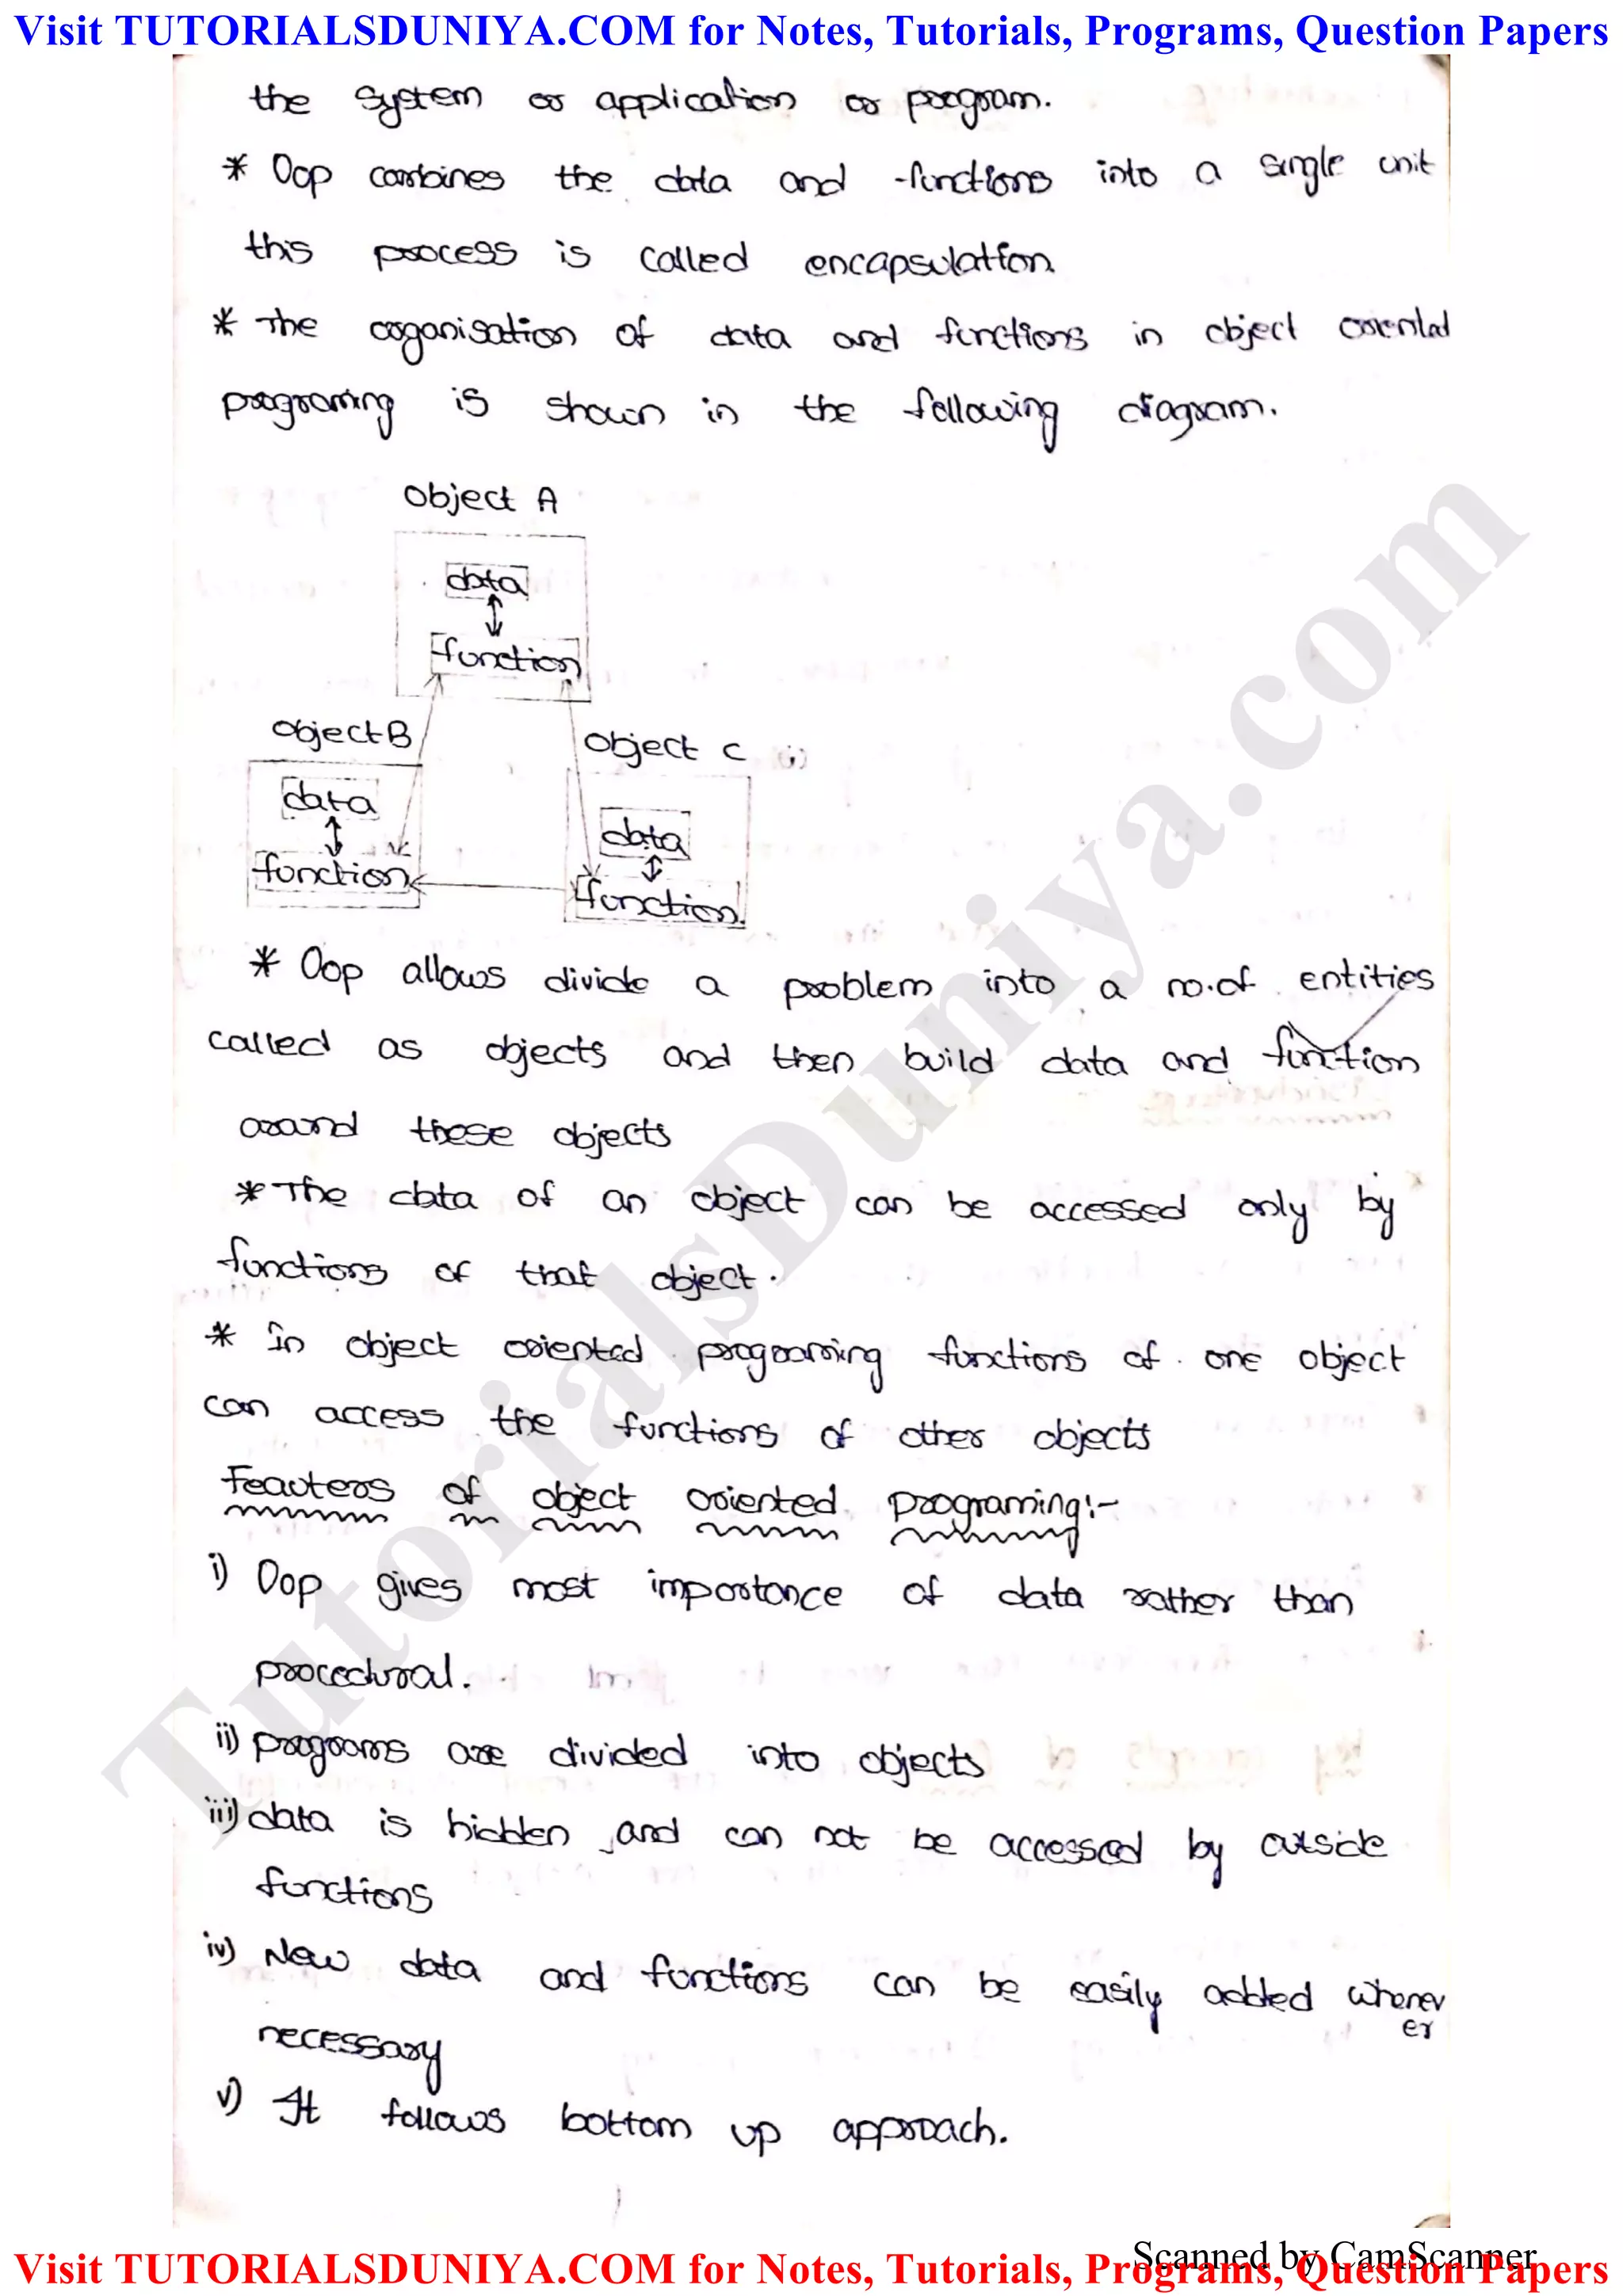 Visit TUTORIALSDUNIYA.COM for Notes, Tutorials, Programs, Question Papers
the system or application or program.
* Oop combines the data and functions into a single unit
this process is called encapsulation
* The organisation of data and functions in object oriented
programing is shown in the following diagram.
Object A
data
function
Object B
Object C
data
data
function
function
* Oop allows divide a problem into a no.of entities
called as objects and then build data and function
around these objects
* The data of an object can be accessed only by
functions of that object.
* In object oriented programing functions of one object
can access the functions of other objects
Feauters of object oriented programing:-
i) Oop gives most importance of data rather than
procedural.
ii) programs are divided into objects
iii) data is hidden, and can not be accessed by outside
functions
iv) New data and functions can be easily added whenev
er
necessary
v) It follows bottom up approach.
TutorialsDuniya.com
Scanned by CamScanner
Visit TUTORIALSDUNIYA.COM for Notes, Tutorials, Programs, Question Papers